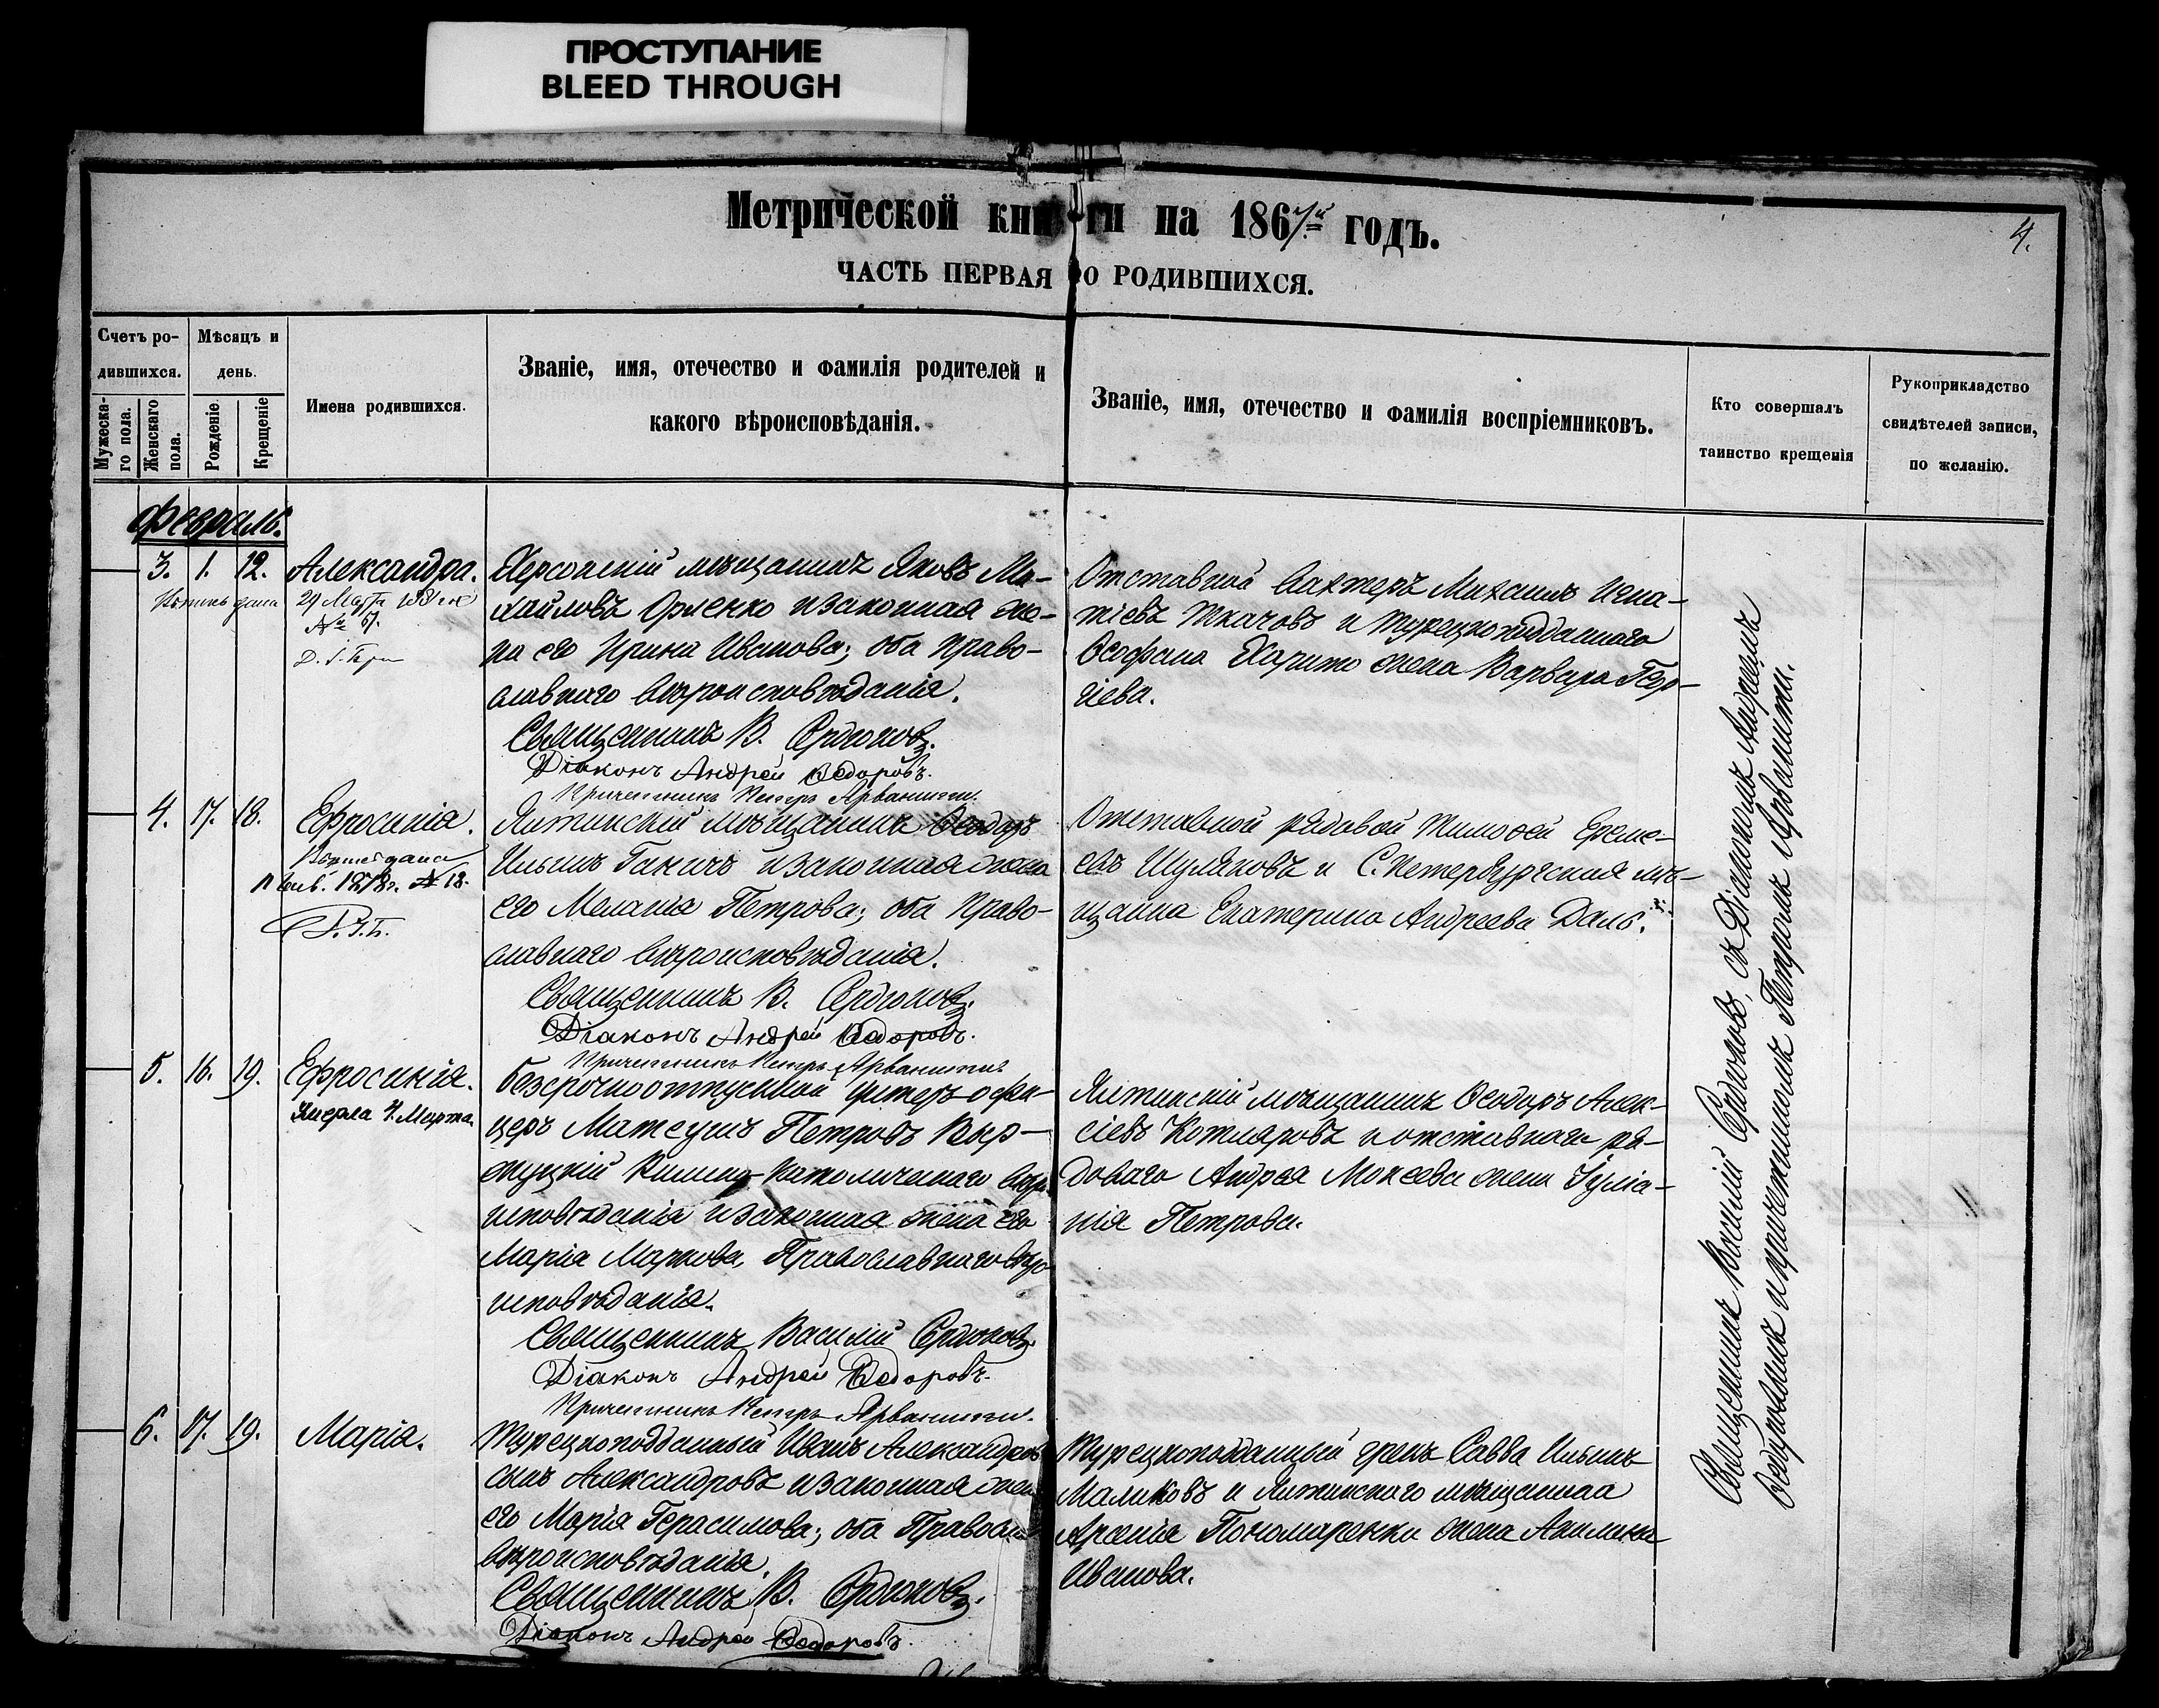 ПРОСТУПАНИЕ
BLEED THROUGH
Метрической книги на 1867й годъ.
4.
ЧАСТЬ ПЕРВАЯ О РОДИВШИХСЯ.
Счетъ ро-
дившихся.
Мужеска-
го пола.
Женскаго
пола.
Мѣсяцъ и
день.
Рожденіе.
Крещеніе
Имена родившихся.
Званіе, имя, отечество и фамилія родителей и
какого вѣроисповѣданія.
Званіе, имя, отечество и фамилія воспріемниковъ.
Кто совершалъ
таинство крещенія
Рукоприкладство
свидѣтелей записи,
по желанію.
Февраль.
3. 1. 12. Александра.
дана 29 Марта
№ 67.
Херсонскій мѣщанинъ Яковъ Ми-
хайловъ Орленко и законная же-
на его Ирина Иванова; оба Право-
славнаго вѣроисповѣданія.
Священникъ В. Сердюковъ.
Діаконъ Андрей Ѳедоровъ.
Причетникъ Петръ Арванити.
Отставной Вахтеръ Михаилъ Игна-
тіевъ Ткачовъ и турецкоподданнаго
Ѳеофана Харито жена Варвара Геор-
гіева.
4. 17. 18. Ефросинія.
дана
1878г. № 18.
Ялтинскій мѣщанинъ Ѳеодоръ
Ильинъ Ганичъ и законная жена
его Меланія Петрова; оба Право-
славнаго вѣроисповѣданія.
Священникъ В. Сердюковъ.
Діаконъ Андрей Ѳедоровъ.
Причетникъ Петръ Арванити
Отставной рядовой Тимоѳей Ереме-
евъ Шуляковъ и С.Петербургская мѣ-
щанка Екатерина Андреева Даль.
5. 16. 19. Ефросинія.
Умерла 4. Марта.
безсрочноотпускной унтеръ-офи-
церъ Матеушъ Петровъ Выр-
жуцкій Римско-Католическаго вѣро
исповѣданія и законная жена его
Марія Маркова, Православнаго вѣро
исповѣданія.
Священникъ Василій Сердюковъ.
Діаконъ Андрей Ѳедоровъ.
Причетникъ Петръ Арванити.
Ялтинскій мѣщанинъ Ѳеодоръ Алек-
сіевъ Котляровъ и отставнаго ря-
доваго Андрея Мокеева жена Іуліа-
нія Петрова.
6. 17. 19. Марія.
Турецкоподданный Иванъ Александровъ
сынъ Александровъ и законная жена
его Марія Герасимова; оба Правосл
вѣроисповѣданія.
Священникъ В. Сердюковъ.
Діаконъ Андрей Ѳедоровъ.
Турецкоподданный грекъ Савва Ильинъ
Маликовъ и Ялтинскаго мѣщанина
Арсенія Пономаренки жена Акилина
Иванова.
Священникъ Василій Сердюковъ, съ Діакономъ Андреемъ
Ѳедоровымъ и причетникомъ Петромъ Арванити.